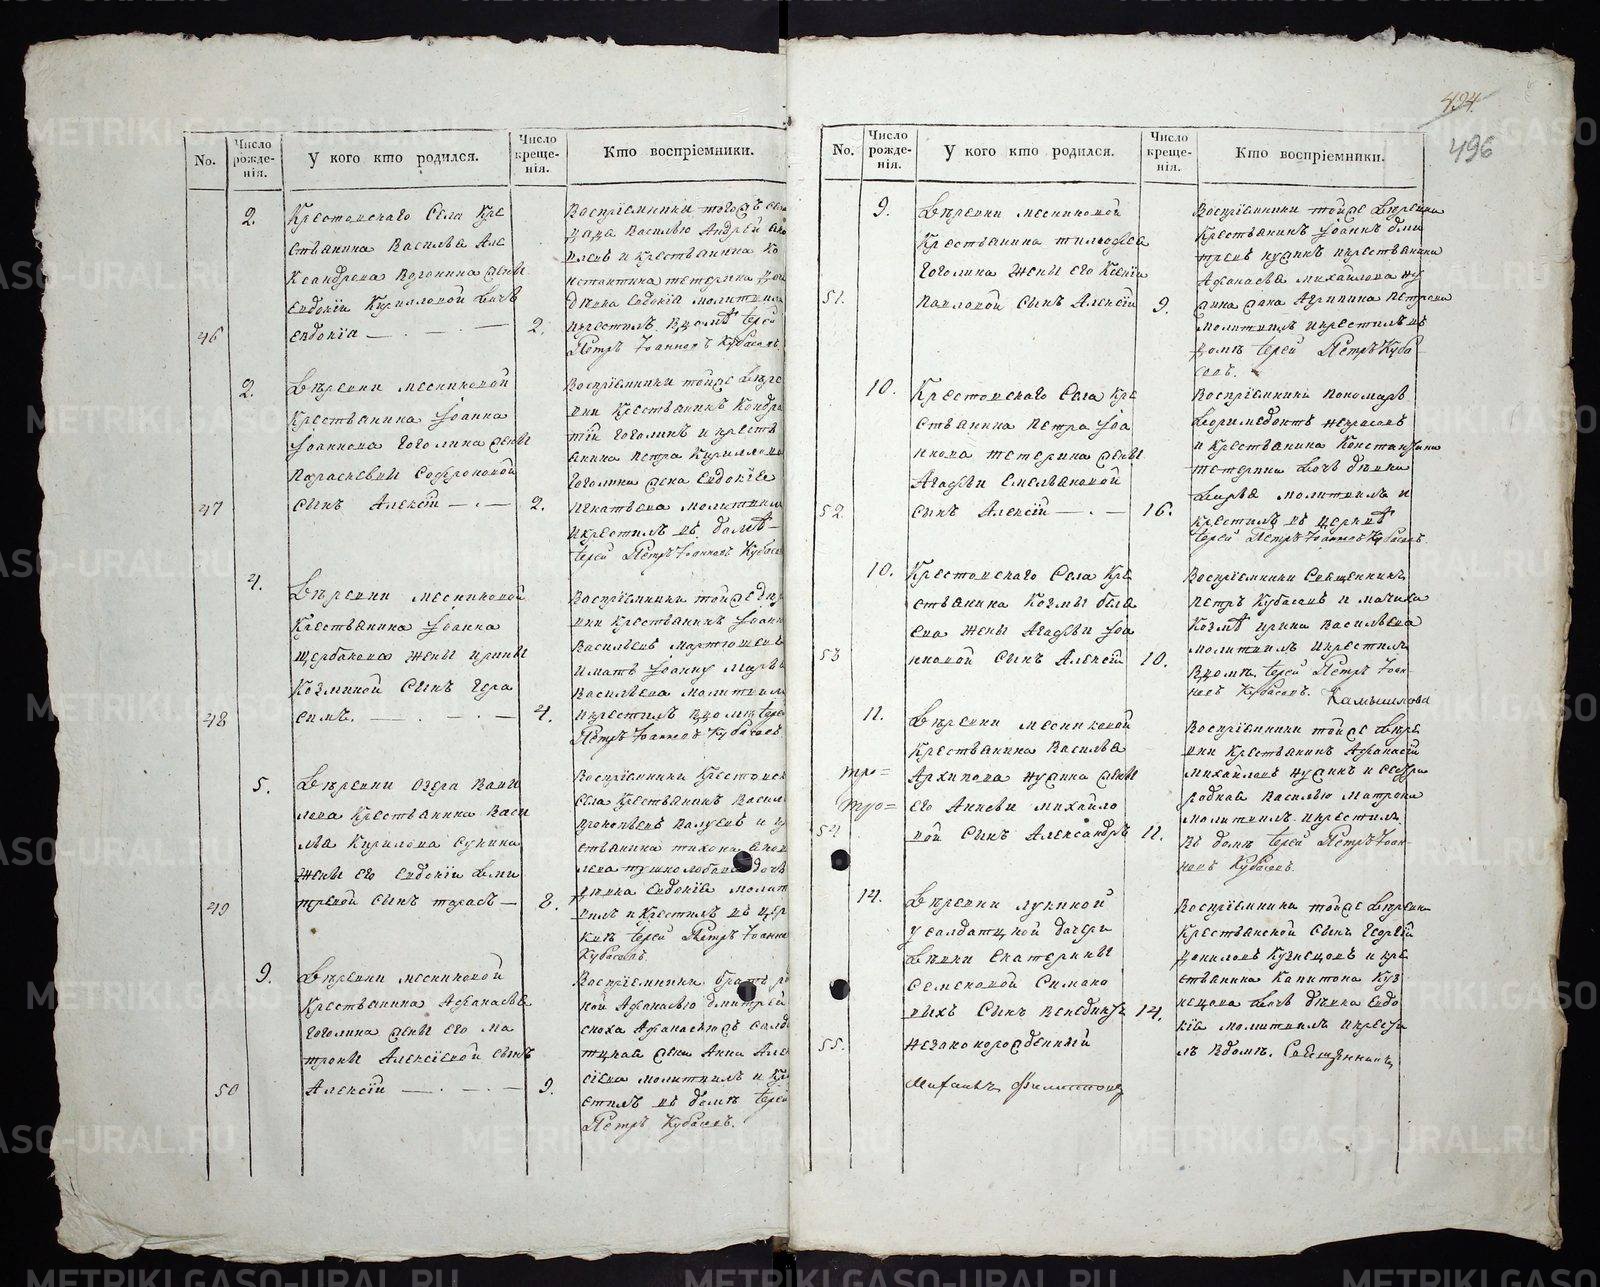 494
496
No.
Число рожденія.
У кого кто родился.
Число крещенія.
Кто воспріемники.
2.
Крестовскаго Села Кре
стьянина Василья Але
ксандрова Воронина жены
Евдокіи Кириловой дочь
46
Евдокіа
2.
Воспріемники тогожъ
Василью Андрей
и крестьянина Ко
нстантина тетерина
Евдокіа молитвилъ
икрестилъ вдомѣ Іерей
Петръ Іоанновъ Кубасовъ.
2.
Деревни месниковой
Крестьянина Іоанна
Іоаннова Гоголина жены
Параскевьи Софроновой
47
сынъ Алексій
2.
Воспріемники тойже Дере
вни Крестьянинъ Кондра
тій Гоголинъ и крестъ
янина Петра Кирилова
Гоголина жена Евдокіѣ
Игнатьева молитвилъ
икрестилъ въ домѣ
Іерей Петръ Іоанновъ Кубасовъ
4.
Деревни месниковой
Крестьянина Іоанна
Щербакова жены Ирины
Козминой Сынъ Гера
48
симъ.
4.
Воспріемники тойже
вни крестьянинъ Іоаннъ
Васильевъ Мартюшевъ
Имать Іоанну Марья
Васильева молитвилъ
икрестилъ вдомѣ Іерей
Петръ Іоанновъ Кубасовъ
5.
Деревни Озера
лева Крестьянина Васи
лья Кирилова Сухина
жены его Евдокіи Дми
49
тревой сынъ тарасъ
8.
Воспріемники Крестовск
села Крестьянинъ Васил
Прокопьевъ Валуевъ и
стьянина тихона
дочь
дѣвка Евдокіѣ молит
вилъ и Крестилъ въ цер
квѣ Іерей Петръ Іоанно
Кубасовъ.
9.
Деревни месниковой
Крестьянина Афанасья
Гоголина жены его Ма
троны Алексіевой сынъ
50
Алексій
9.
Воспріемники братъ ро
ной Афанасью Дмитрей
сноха Афанасьюжъ Салда
тцкая жена Анна Але
сіева молитвилъ и Кре
стилъ въ домѣ Іерей
Петръ Кубасовъ.
No.
Число рожденія.
У кого кто родился.
Число крещенія.
Кто воспріемники.
9.
Деревни месниковой
Крестьянина тимофея
Гоголина жены его Ксеніи
51.
Павловой сынъ Алексій
9.
Воспріемники тойже Деревни
Крестьянинъ Іоаннъ Дми
тревъ нужинъ икрестьянина
Афанасья михайлова ну
жина жена Агрипина Петрова
Молитвилъ икрестилъ въ
домѣ Іерей Петръ Куба
совъ.
10.
Крестовскаго Села Кре
стьянина Петра Іоа
ннова тетерина жены
Агафьи Емельяновой
52.
сынъ Алексій
16.
Воспріемники Пономарь
Доримедонтъ Некрасовъ
и Крестьянина Константина
тетерина дочь дѣвка
Дарья молитвилъ и
крестилъ въ церквѣ
Іерей Петръ Іоанновъ Кубасовъ.
10.
Крестовскаго Села Кре
стьянина Козмы беля
ева жены Агафьи Іоа
53
нновой Сынъ Алексій
10.
Воспріемники Священникъ
Петръ Кубасовъ и мачиха
Козмѣ Ирина Васильева
молитвилъ икрестилъ
вдомѣ Іерей Петръ Іоан
новъ Кубасовъ. Камышлова
11.
Деревни месниковой
Крестьянина Василья
тро=
Архипова нужина жены
тро=
его Анисьи михайло
54
вой сынъ Александръ
11.
Воспріемники тойже Дере
вни Крестьянинъ Афанасій
Михайловъ нужинъ и сестра
родная Василью Матрона
молитвилъ икрестилъ
въ домѣ Іерей Петръ Іоан
новъ Кубасовъ.
14.
Деревни лукиной
у салдатцкой дочери
Дѣвки Екатерины
Семеновой Симано
выхъ сынъ Венедиктъ
14.
55.
незаконорожденный
Воспріемники тойже Деревни
Крестьянской сынъ Георгій
Даниловъ Кузнецовъ и кре
стьянина Капитона Куз
нецова Дочь дѣвка Евдо
кія молитвилъ икрести
лъ вдомѣ. Священникъ
Михаилъ Филиппов